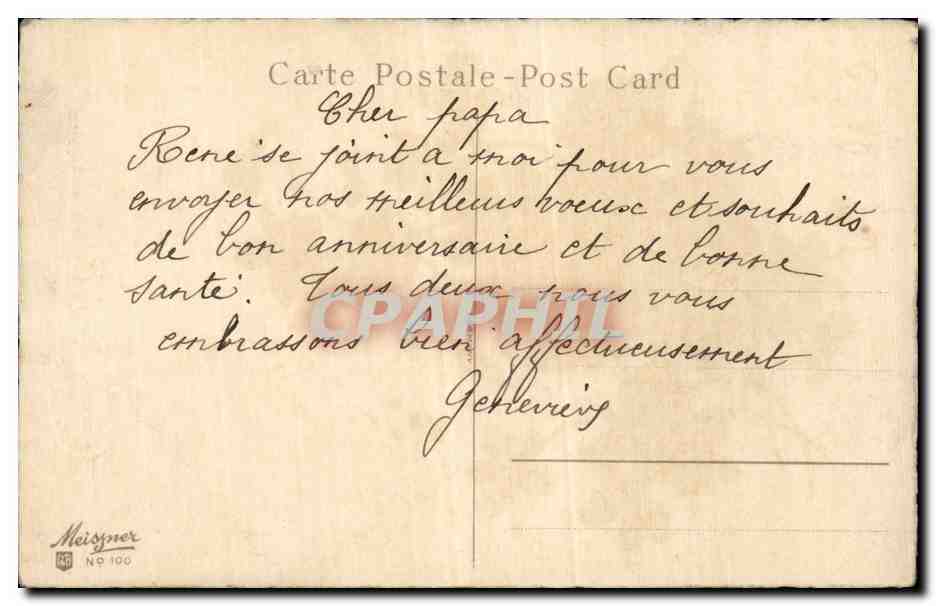 Carte Postale - Post Card
Cher papa
René se joint a moi pour vous
envoyer nos meilleurs voeux et souhaits
de bon anniversaire et de bonne
santé. Tous deux nous vous
CPAPHIL
embrassons bien affectueusement
Geneviève
Meissner
No 100